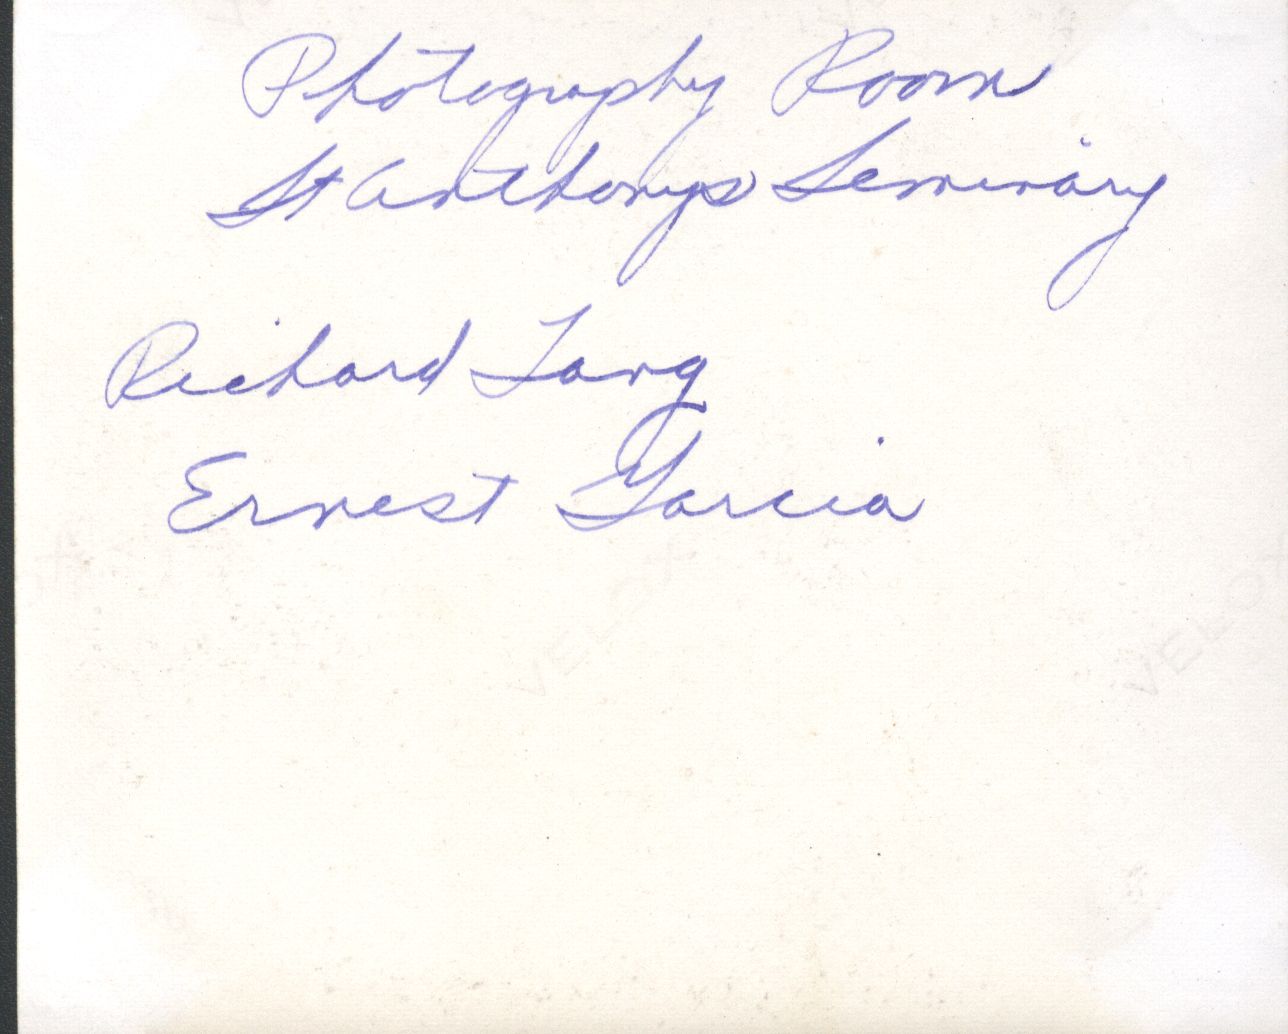 Photography Room
St Anthonys Seminary
Richard Lang
Ernest Garcia
VELOX
VELOX